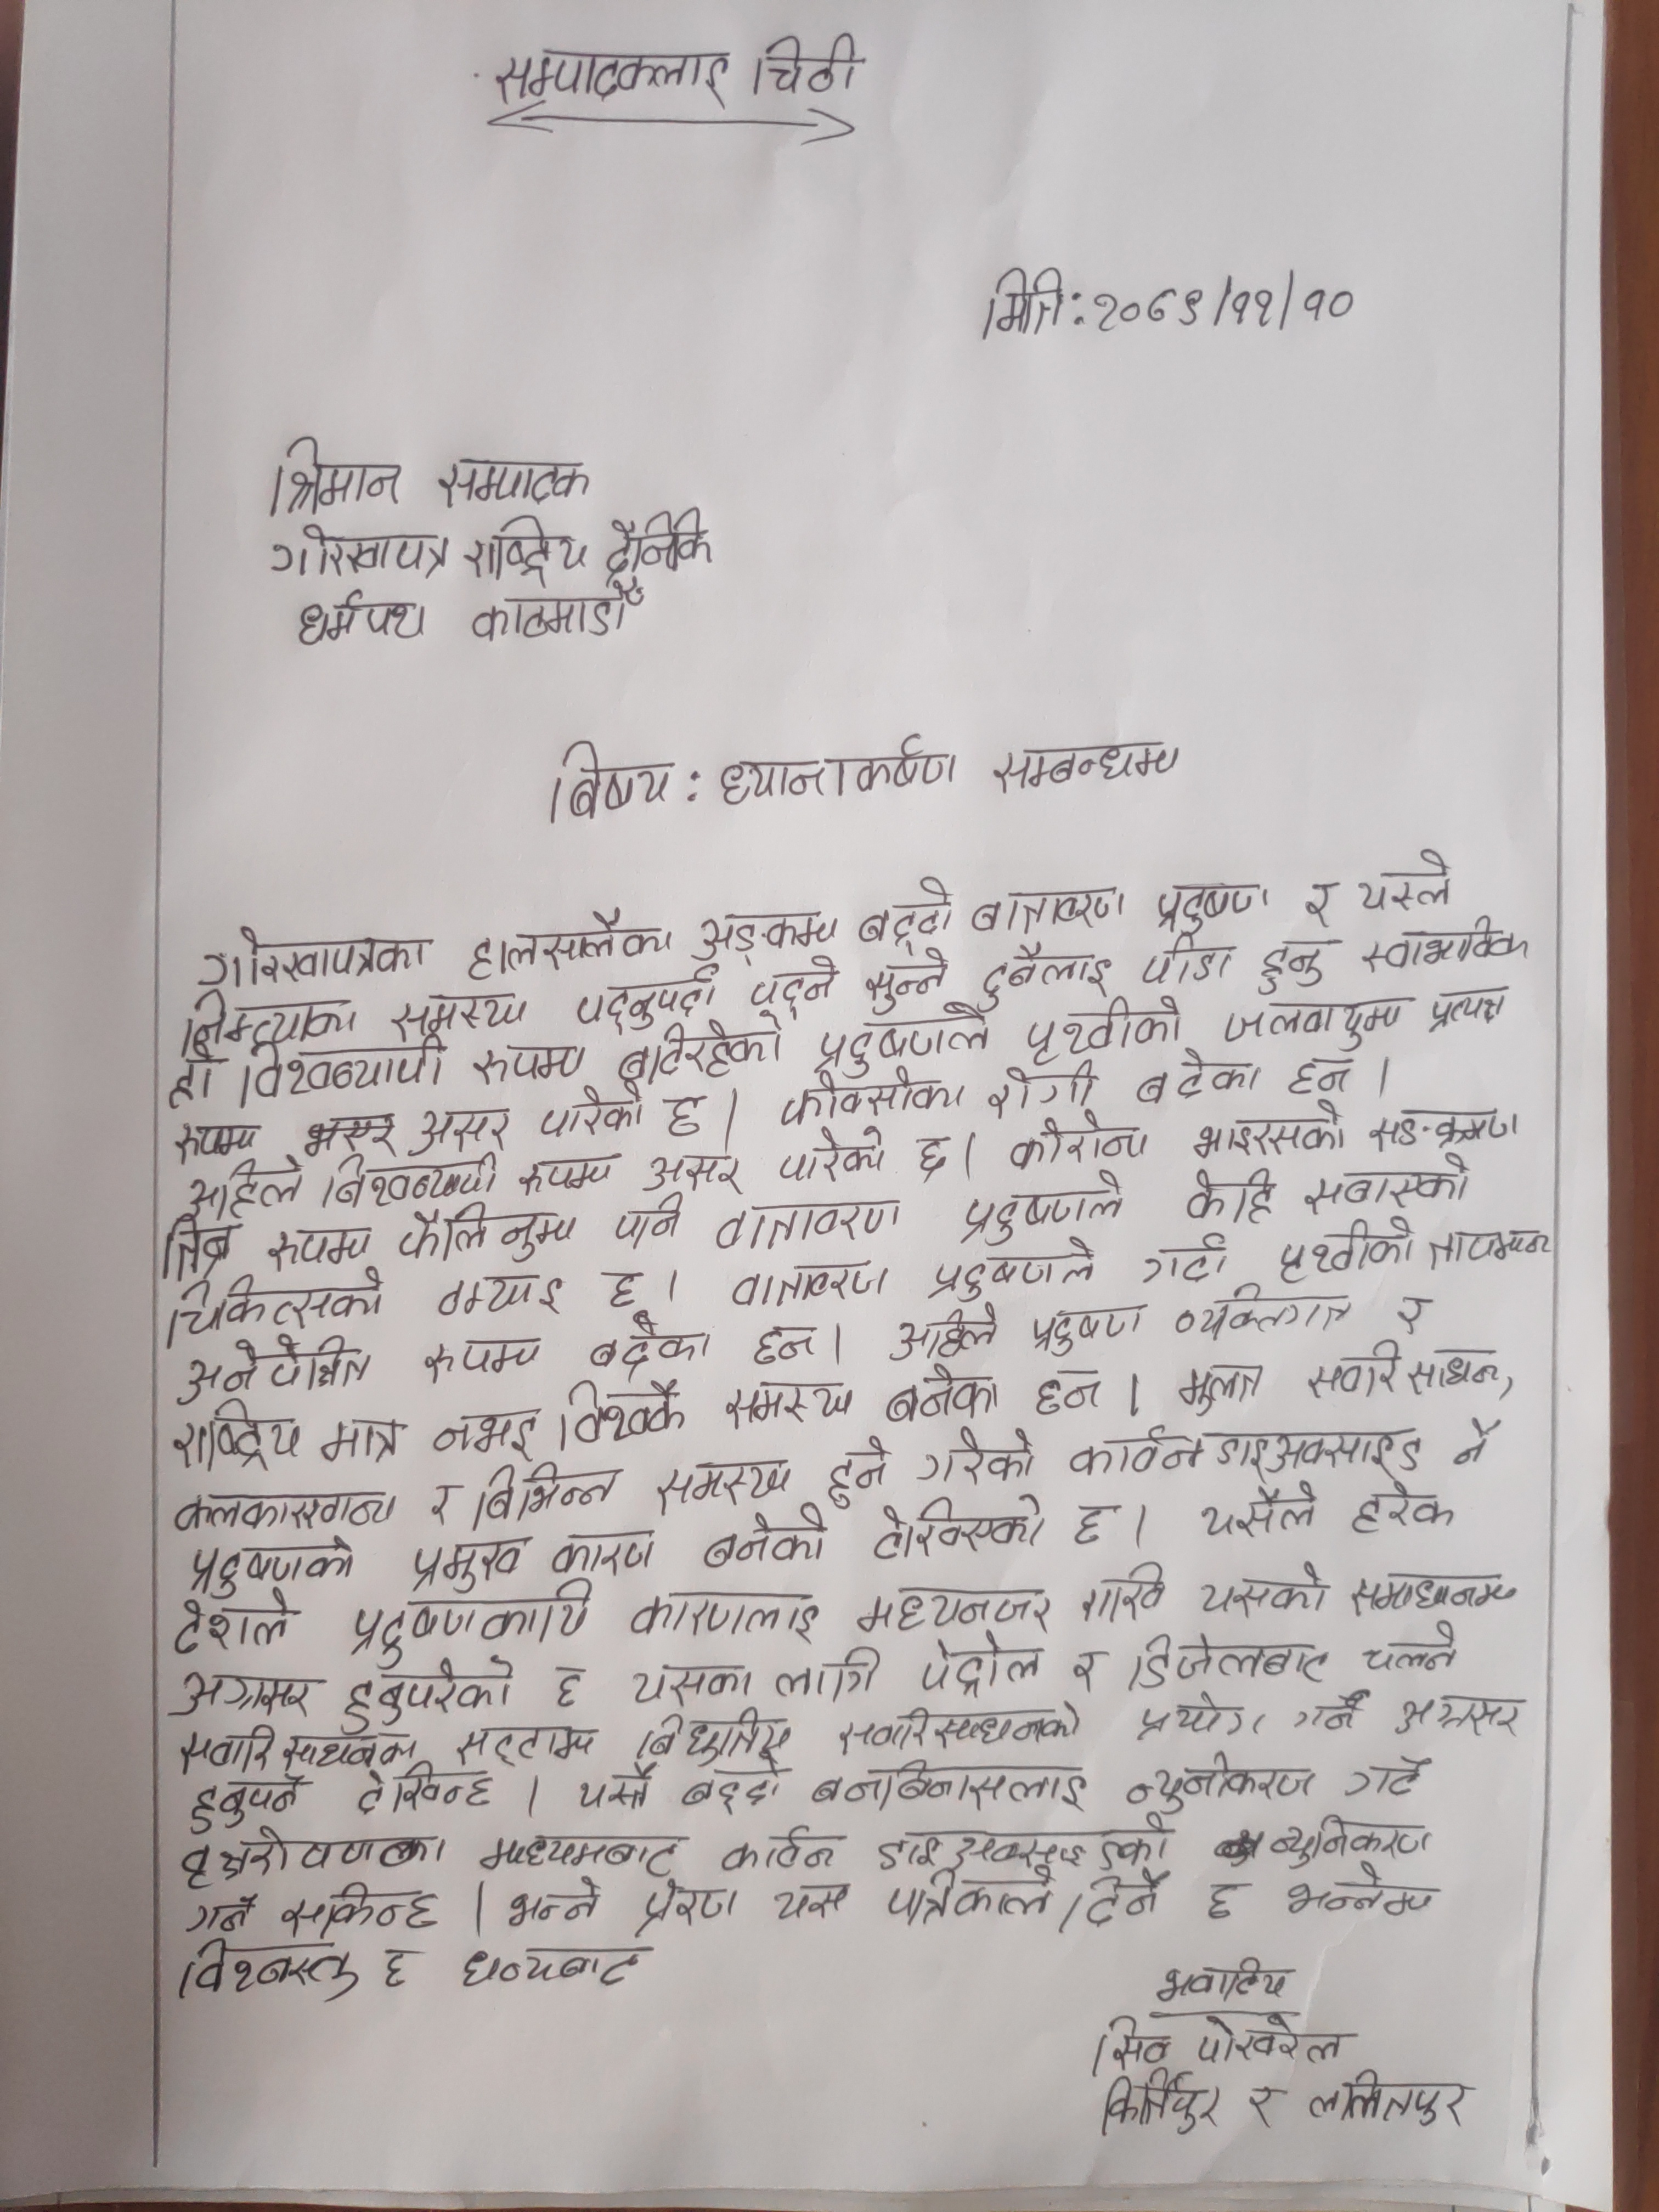 सम्पादकलाइ चिठी
मिति: २०७९/११/१०
श्रिमान सम्पादक
गोरखापत्र राष्ट्रिय दैनिकि
धर्मपथ काठमाडौँ
बिषय: ध्यानाकर्षण सम्बन्धमा
गोरखापत्रका हालसालैका अङ्कमा बढ्दो बातावरण प्रदुषण र यस्ले
निम्त्याका समस्या पढ्नुपर्दा पढ्ने सुन्ने दुनैलाइ पीडा हुनु स्वाभाविक
हो विश्वव्यापी रुपमा बढिरहेको प्रदुषणले पृथ्वीको जलवायुमा प्रत्यक्ष
रुपमा असर पारेको छ। फोक्सोका रोगी बढेका छन।
अहिले विश्वव्यापी रुपमा असर पारेको छ। कोरोना भाइरसको सङ्क्रमण
तिब्र रुपमा फैलिनुमा पनि वातावरण प्रदुषणले केहि सघाएको
चिकित्सको ठम्याइ छ। वातावरण प्रदुषणले गर्दा पृथ्वीको तापमान
अनेपेक्षित रुपमा बढेका छन। अहिले प्रदुषण व्यक्तिगत र
राष्ट्रिय मात्र नभइ विश्वकै समस्या बनेका छन। मुलत सवारि साधन,
कलकारखाना र बिभिन्न समस्या हुने गरेको कार्वन डाइअक्साइड नै
प्रदुषणको प्रमुख कारण बनेको देखिएको छ। यसैले हरेक
देशले प्रदुषणकारि कारणलाइ मध्यनजर राखि यसको समाधानमा
अग्रसर हुनुपरेको छ यसका लागि पेट्रोल र डिजेलबाट चलने
सवारि साधनका सट्टामा बिधुतिय सवारिसाधनको प्रयोग गर्न अग्रसर
हुनुपर्ने देखिन्छ। यस्तै बढ्दो बनबिनासलाइ न्युनीकरण गर्दै
वृक्षरोपणका माध्यमबाट कार्वन डाइअक्साइडको न्युनिकरण
गर्न सकिन्छ। भन्ने प्रेरणा यस पत्रिकाले दिने छ भन्नेमा
विश्वस्त छु धन्यबाद
भवादिय
सिव पोखरेल
किर्तिपुर र ललितपुर